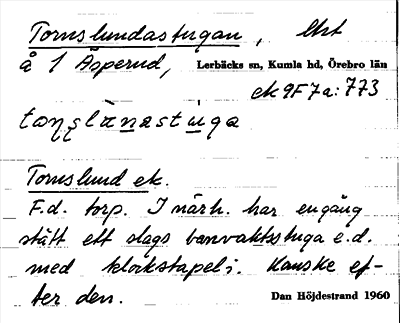 Tomslundastugan, Ukt
å 1 Äsperud, Lerbäcks sn, Kumla hd, Örebro län
ek 9F7a:773
Tomslund ek.
F.d. torp. I närh. har engång
stått ett slags banvaktsstuga e.d.
med klockstapel i. Kanske ef-
ter den. Dan Höjdestrand 1960